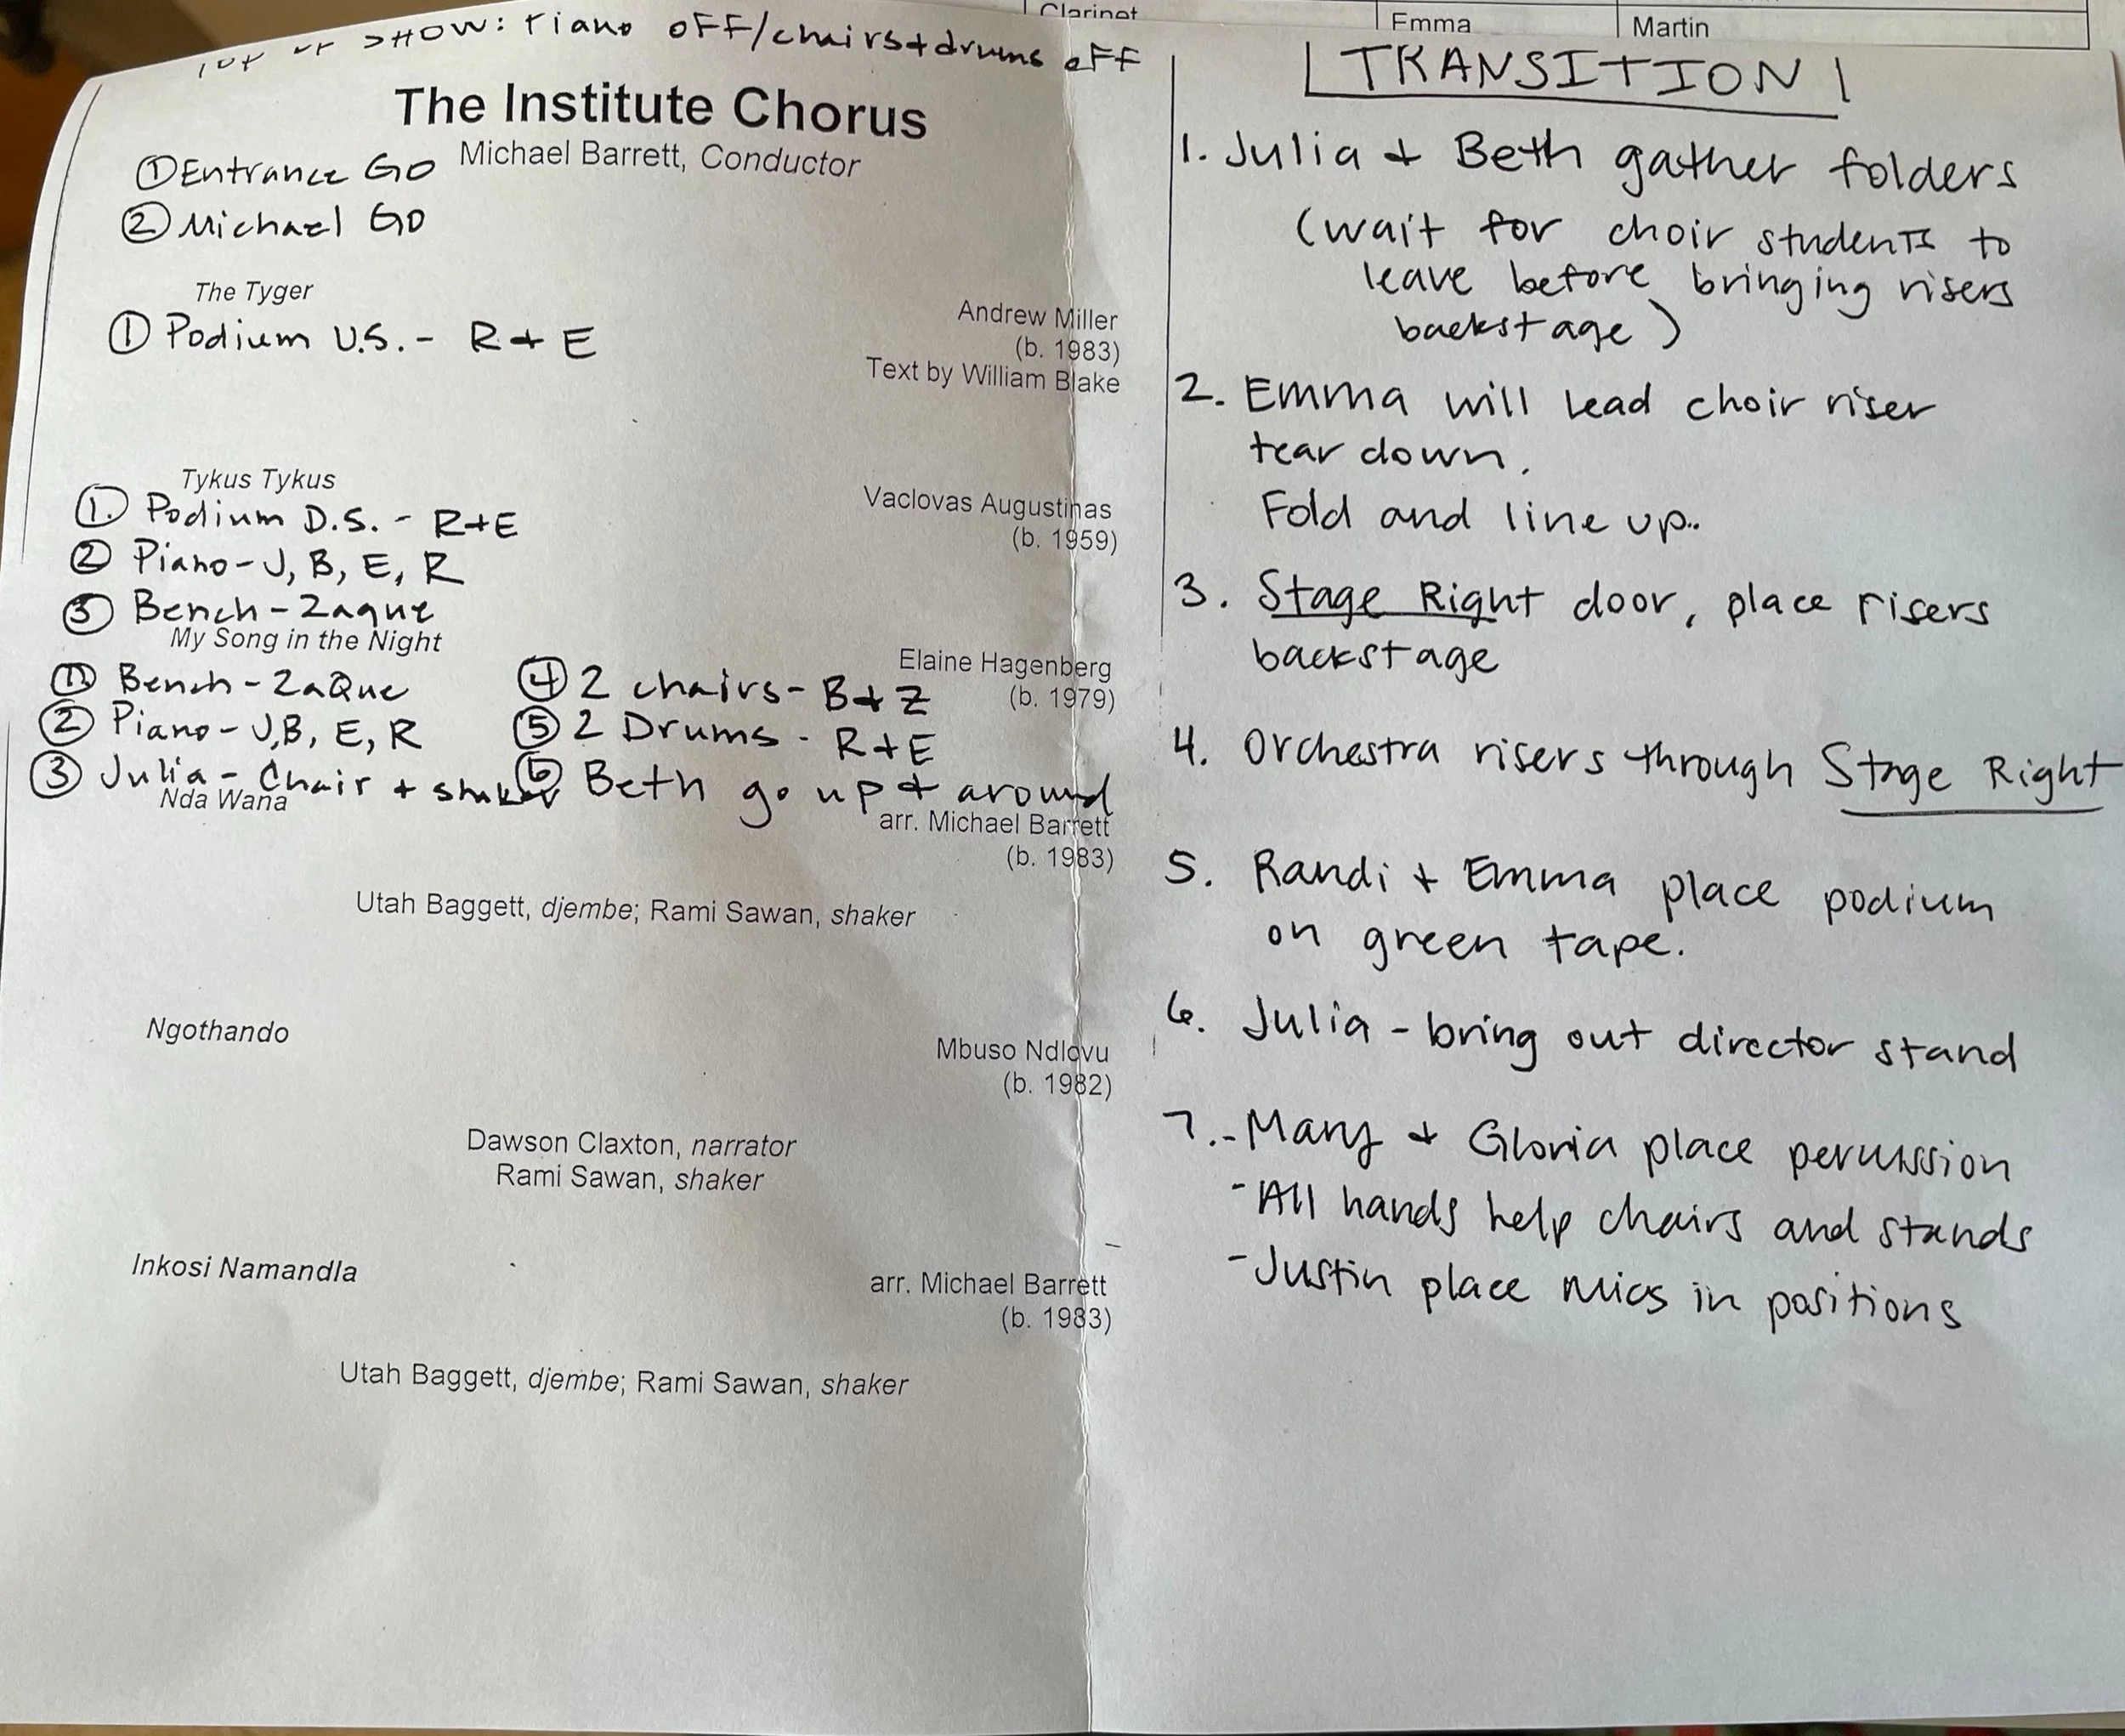 Clarinet
Emma
Martin
TOP OF SHOW: Piano OFF/chairs+drums OFF
The Institute Chorus
Michael Barrett, Conductor
① Entrance GO
② Michael GO
The Tyger
Andrew Miller
(b. 1983)
Text by William Blake
① Podium U.S. - R + E
Tykus Tykus
Vaclovas Augustinas
(b. 1959)
①. Podium D.S. - R+E
② Piano - J, B, E, R
③ Bench - Zaque
My Song in the Night
Elaine Hagenberg
(b. 1979)
① Bench - ZaQue
② Piano - J,B, E, R
③ Julia - Chair + shaker
④ 2 chairs - B + Z
⑤ 2 Drums - R+E
⑥ Beth go up + around
Nda Wana
arr. Michael Barrett
(b. 1983)
Utah Baggett, djembe; Rami Sawan, shaker
Ngothando
Mbuso Ndlovu
(b. 1982)
Dawson Claxton, narrator
Rami Sawan, shaker
Inkosi Namandla
arr. Michael Barrett
(b. 1983)
Utah Baggett, djembe; Rami Sawan, shaker
TRANSITION
1. Julia + Beth gather folders
(wait for choir students to
leave before bringing risers
backstage)
2. Emma will lead choir riser
tear down.
Fold and line up..
3. Stage Right door, place risers
backstage
4. Orchestra risers through Stage Right
5. Randi + Emma place podium
on green tape.
6. Julia - bring out director stand
7. - Many + Gloria place percussion
- All hands help chairs and stands
- Justin place mics in positions